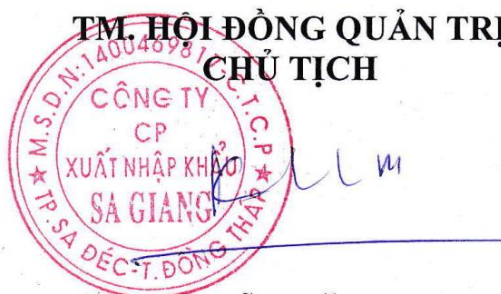 TM. HỘI ĐỒNG QUẢN TRỊ
CHỦ TỊCH
M.S.D.N:1400469817-C.T.C.P
CÔNG TY
CP
XUẤT NHẬP KHẨU
SA GIANG
TP. SA ĐÉC-T. ĐỒNG THÁP